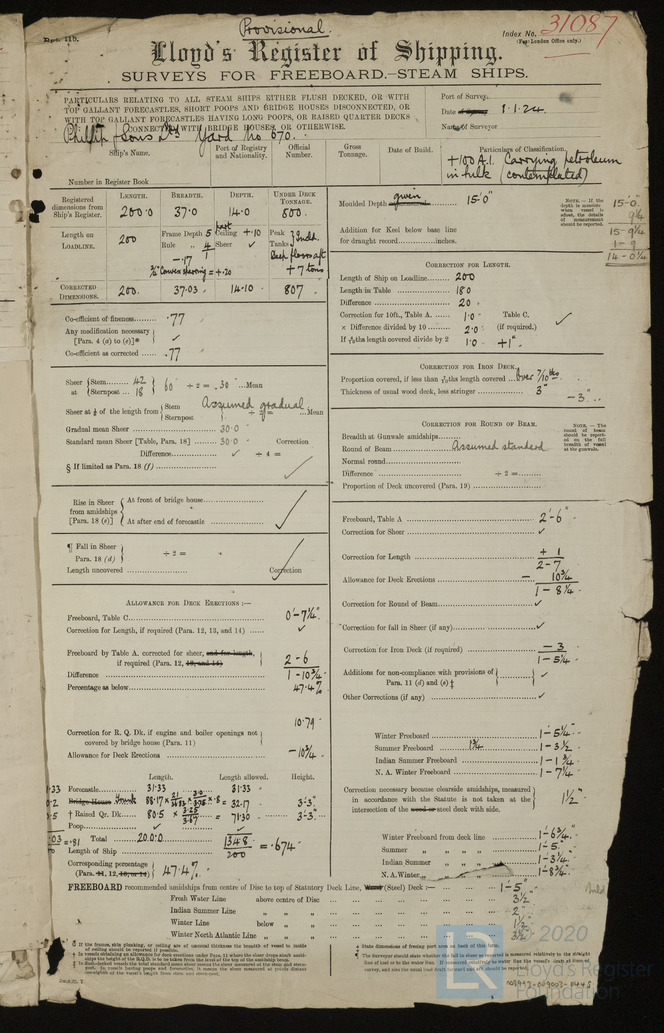 Provisional.
Rpt. 11b.
Index No. 31087
(For London Office only.)
Lloyd's Register of Shipping.
SURVEYS FOR FREEBOARD.—STEAM SHIPS.
PARTICULARS RELATING TO ALL STEAM SHIPS EITHER FLUSH DECKED, OR WITH
TOP GALLANT FORECASTLES, SHORT POOPS AND BRIDGE HOUSES DISCONNECTED, OR
WITH TOP GALLANT FORECASTLES HAVING LONG POOPS, OR RAISED QUARTER DECKS
CONNECTED WITH BRIDGE HOUSES, OR OTHERWISE.
Port of Survey
Date 1.1.24
Name of Surveyor
Phillip & Sons Yard No 670.
Ship's Name.
Port of Registry and Nationality.
Official Number.
Gross Tonnage.
Date of Build.
Particulars of Classification.
+100 A.1. Carrying petroleum
in bulk (contemplated)
Number in Register Book
LENGTH. BREADTH. DEPTH. UNDER DECK TONNAGE.
Registered dimensions from Ship's Register. 200.0 37.0 14.0 800.
Length on LOADLINE. 200
Frame Depth 5 Ceiling +.10 Peak Tanks
Rule 4 Sheer ✓
-.17
+7 tons
CORRECTED DIMENSIONS. 200. 37.03 14.10 807
Moulded Depth given 15'.0"
Addition for Keel below base line
for draught record inches.
NOTE.—If the depth is measured when vessel is afloat, the details of measurement should be reported.
15-0"
9¼
15-9¼
1-9
14-0¼
CORRECTION FOR LENGTH.
Length of Ship on Loadline 200
Length in Table 180
Difference 20
Correction for 10ft., Table A. 1.0 Table C.
× Difference divided by 10 2.0 (if required.) ✓
If 6/10ths length covered divide by 2 1.0 +1"
Co-efficient of fineness .77
Any modification necessary
[Para. 4 (a) to (e)]* ✓
Co-efficient as corrected .77
CORRECTION FOR IRON DECK.
Proportion covered, if less than 7/10ths length covered Over 7/10ths
Thickness of usual wood deck, less stringer 3"
-3"
Sheer at Stem 42
Sternpost 18
60 ÷ 2 = .30 Mean
Sheer at ⅛ of the length from Stem Sternpost Assumed gradual ÷ 2 = Mean
Gradual mean Sheer 30.0
Standard mean Sheer [Table, Para. 18] 30.0 Correction
Difference ✓ ÷ 4 =
§ If limited as Para. 18 (f) ✓
CORRECTION FOR ROUND OF BEAM.
Breadth at Gunwale amidships
Round of Beam Assumed standard
Normal round
Difference ÷ 2 =
Proportion of Deck uncovered (Para. 19)
NOTE.—The round of beam should be reported on the full breadth of vessel at the gunwale.
Rise in Sheer from amidships [Para. 18 (e)]
At front of bridge house
At after end of forecastle
✓
¶ Fall in Sheer Para. 18 (d) ÷ 2 =
Length uncovered Correction
Freeboard, Table A 2'-6"
Correction for Sheer ✓
Correction for Length +1
2-7
Allowance for Deck Erections — 10¾
1-8¼
Correction for Round of Beam ✓
Correction for fall in Sheer (if any) ✓
Correction for Iron Deck (if required) —3
1-5¼
Additions for non-compliance with provisions of Para. 11 (d) and (e) ‡ ✓
Other Corrections (if any) ✓
ALLOWANCE FOR DECK ERECTIONS:—
Freeboard, Table C 0'-7¼"
Correction for Length, if required (Para. 12, 13, and 14) ✓
Freeboard by Table A. corrected for sheer, and for length,
if required (Para. 12, 13, and 14) 2-6
Difference 1-10¾
Percentage as below 47.4%
10.79
Correction for R. Q. Dk. if engine and boiler openings not
covered by bridge house (Para. 11)
Allowance for Deck Erections -10¾
Winter Freeboard 1-5¼
Summer Freeboard 1¾ 1-3½
Indian Summer Freeboard 1-1¾
N. A. Winter Freeboard 1-7¼
Correction necessary because clearside amidships, measured
in accordance with the Statute is not taken at the
intersection of the wood or steel deck with side. 1½"
Length. Length allowed. Height.
Forecastle 31.33 31.33
Bridge House 88.17 × .8 = 32.17 3'-3"
† Raised Qr. Dk. 80.5 × 3.25/3.67 = 71.30 3'-3"
Poop ✓
Total 200.0 134.8
Length of Ship 200 = .674
Corresponding percentage
(Para. 11, 12, 13, or 14) 47.4%
Winter Freeboard from deck line 1-6¾
Summer „ „ „ „ 1-5
Indian Summer „ „ „ „ 1-3¼
N. A. Winter „ „ „ „ 1-8¾
FREEBOARD recommended amidships from centre of Disc to top of Statutory Deck Line, Wood (Steel) Deck:— 1-5"
Fresh Water Line above centre of Disc 3½
Indian Summer Line „ „ „ 2"
Winter Line below „ „ 1½
Winter North Atlantic Line „ „ „ 3½
‡ State dimensions of freeing port area on back of this form.
© 2020
Lloyd's Register
Foundation